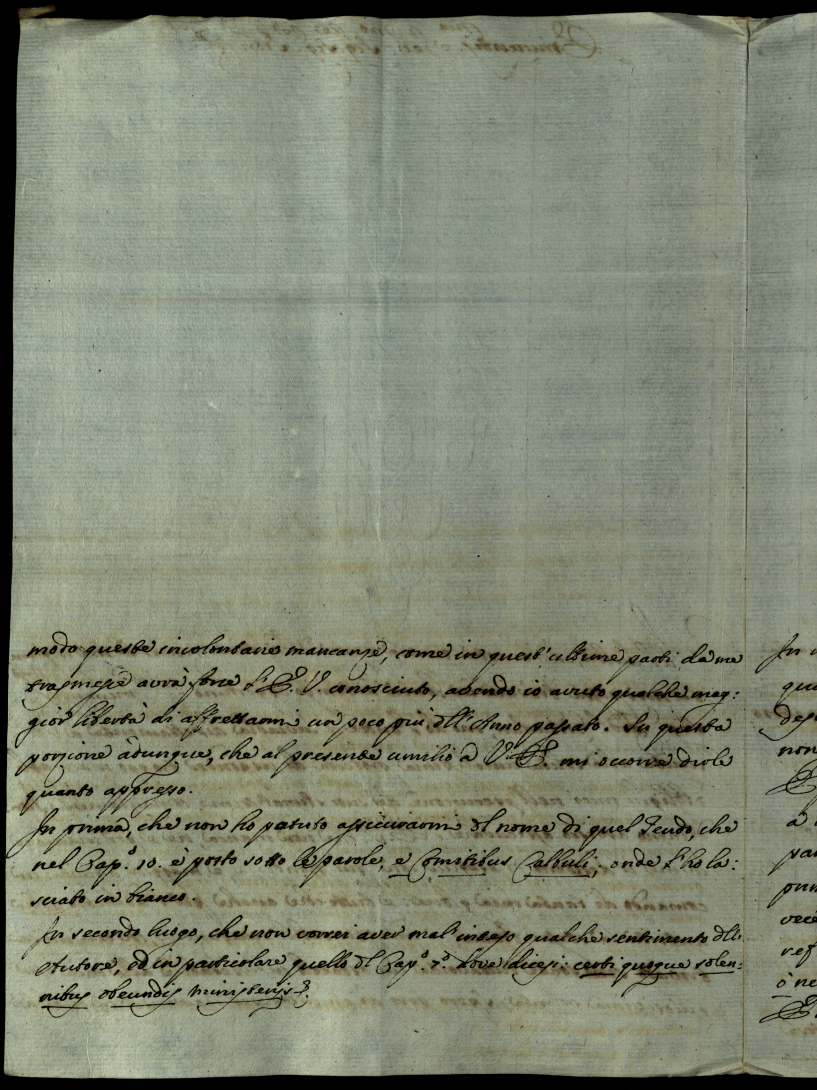 modo queste involontarie mancanze, come in quest'ultime parti da me
trasmesse avrà forse l'E. V. conosciuto, avendo io avuto qualche mag:
gior libertà di affrettarmi un poco più dll'Anno passato. Su questa
porzione adunque, che al presente umilio a V. E. mi occorre dirle
quanto appresso.
In prima, che non ho potuto assicurarmi dl nome di quel Feudo, che
nel Cap.º 10. è posto sotto le parole, e Comitibus Calbuli; onde l'ho la:
sciato in bianco.
In secondo luogo, che non vorrei aver mal'inteso qualche sentimento dll'
Autore, ed in particolare quello dl Cap.º 7.º dove dicesi: certi quoque solen:
nibus obeundis ministeriis
In
qu
non
E
a
par
pun
vece
ref
ò ne